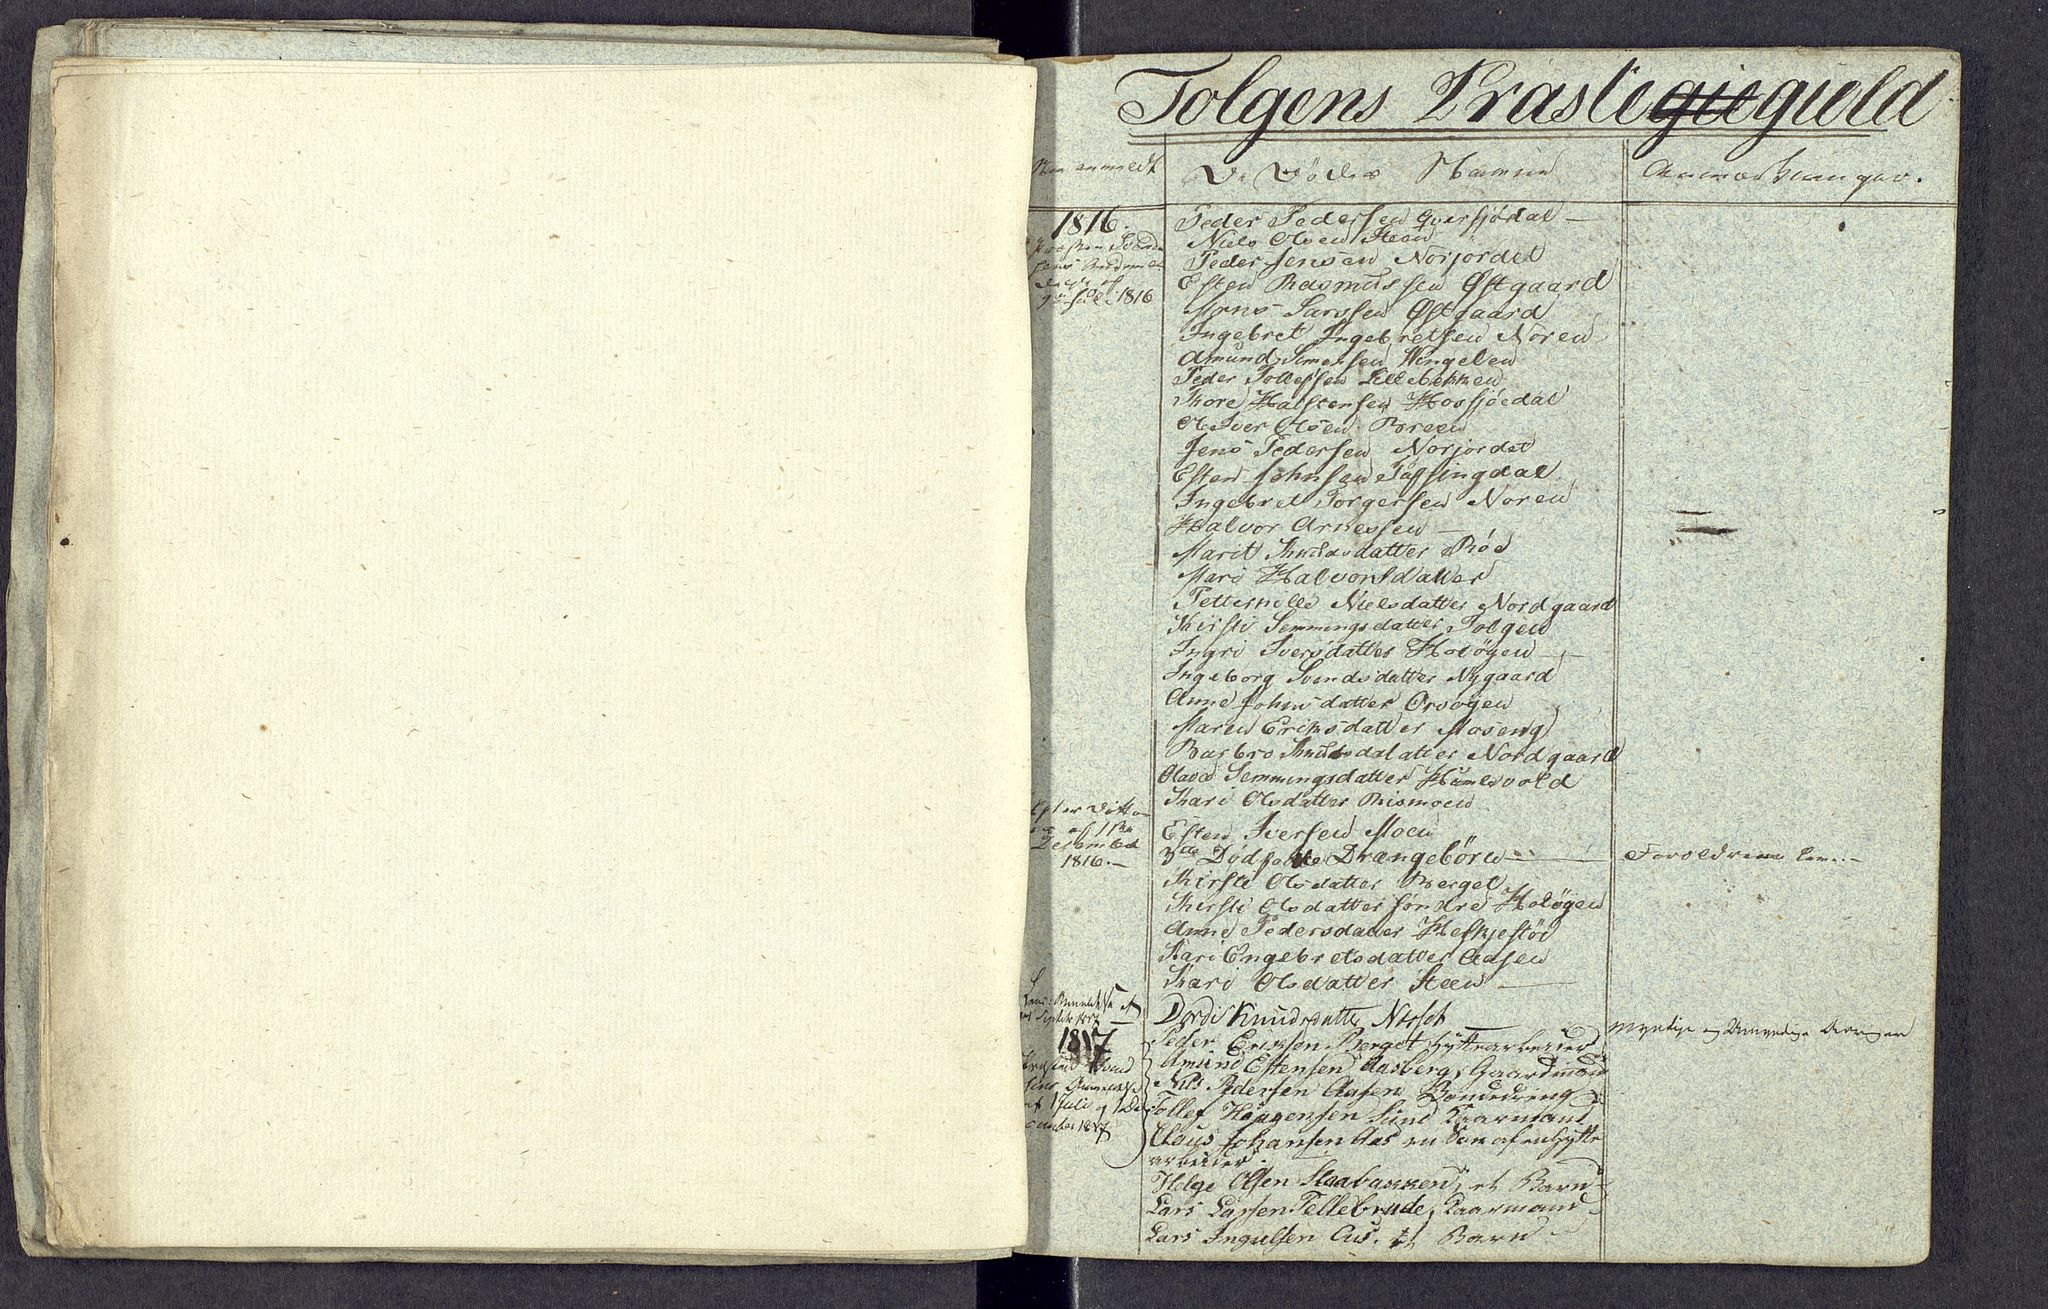 Tolgens Præstegiegield
Naar anmeldt
De Dödes Navne
Anmærkninger.
1816.
Præsten
Anmel
af
1816
Peder Pedersen Qverfjödal
Niels Olsen Steen
Peder Jensen Norjordet
Esten Rasmussen Østgaard
Mons Larssen Østgaard
Ingebret Ingebretsen Noren
Amund Simensen Vingelen
Peder Tollefsen Lillebækken
Thore Halstensen Hosfjoedal
Oliver Olsen Breen
Jens Pedersen Norjordet
Esten Johnsen Tøfsingdal
Ingebret Torgersen Noren
Halvor Arnessen
Marit Knudsdatter Röe
Mari Halvorsdatter
Petternille Nielsdatter Nordgaard
Kirsti Semmingsdatter Tolgen
Ingri Iversdatter Holöyen
Ingeborg Svendsdatter Nygaard
Anne Johnsdatter Orvögen
Maren Eriksdatter Moseng
Barbro Knudsdatter Nordgaard
Olava Semmingsdatter Hamelvold
Kari Olsdatter Rismoen
Efter Ditto
af 1ste
December
1816.
Esten Iversen Moen
3de Dödfødte Drængebörn
Forældrene leve
Kirsti Olsdatter Berget
Kirsti Olsdatter söndre Holöyen
Anne Pedersdatter Hefkjestöe
Kari Engebretsdatter Aasen
Kari Olsdatter Steen
Anmeldelse af
Septbr 1817
Dordi Knudsdatter Næsset
Myndige og Umyndige Arvinger
1817
Anmeldelse
af 1 Juli og 1 De
cember 1817
Peder Eriksen Berget, Hyttearbeider
Amund Estensen Aasberg, Gaardmand
Nils Pedersen Aasen Bondedreng
Tollef Haagensen Sund Kaarmand
Claus Johansen Aas en Søn af en Hytte
arbeider
Helge Olsen Staabakken, et Barn
Lars Larsen Tellebrude, Kaarmand
Lars Ingulsen Eus. et Barn